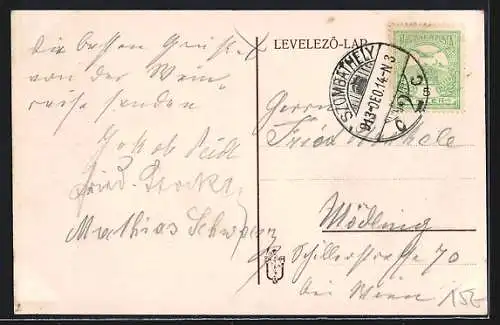 Die besten Grüße
von der Wein-
reise senden
Jakob
Fried.
Mathias Schwarz
LEVELEZŐ-LAP
SZOMBATHELY
913 DEC. 14 - N 3
Herrn
Mödling
Schillerstraße 70
bei Wien
15.-